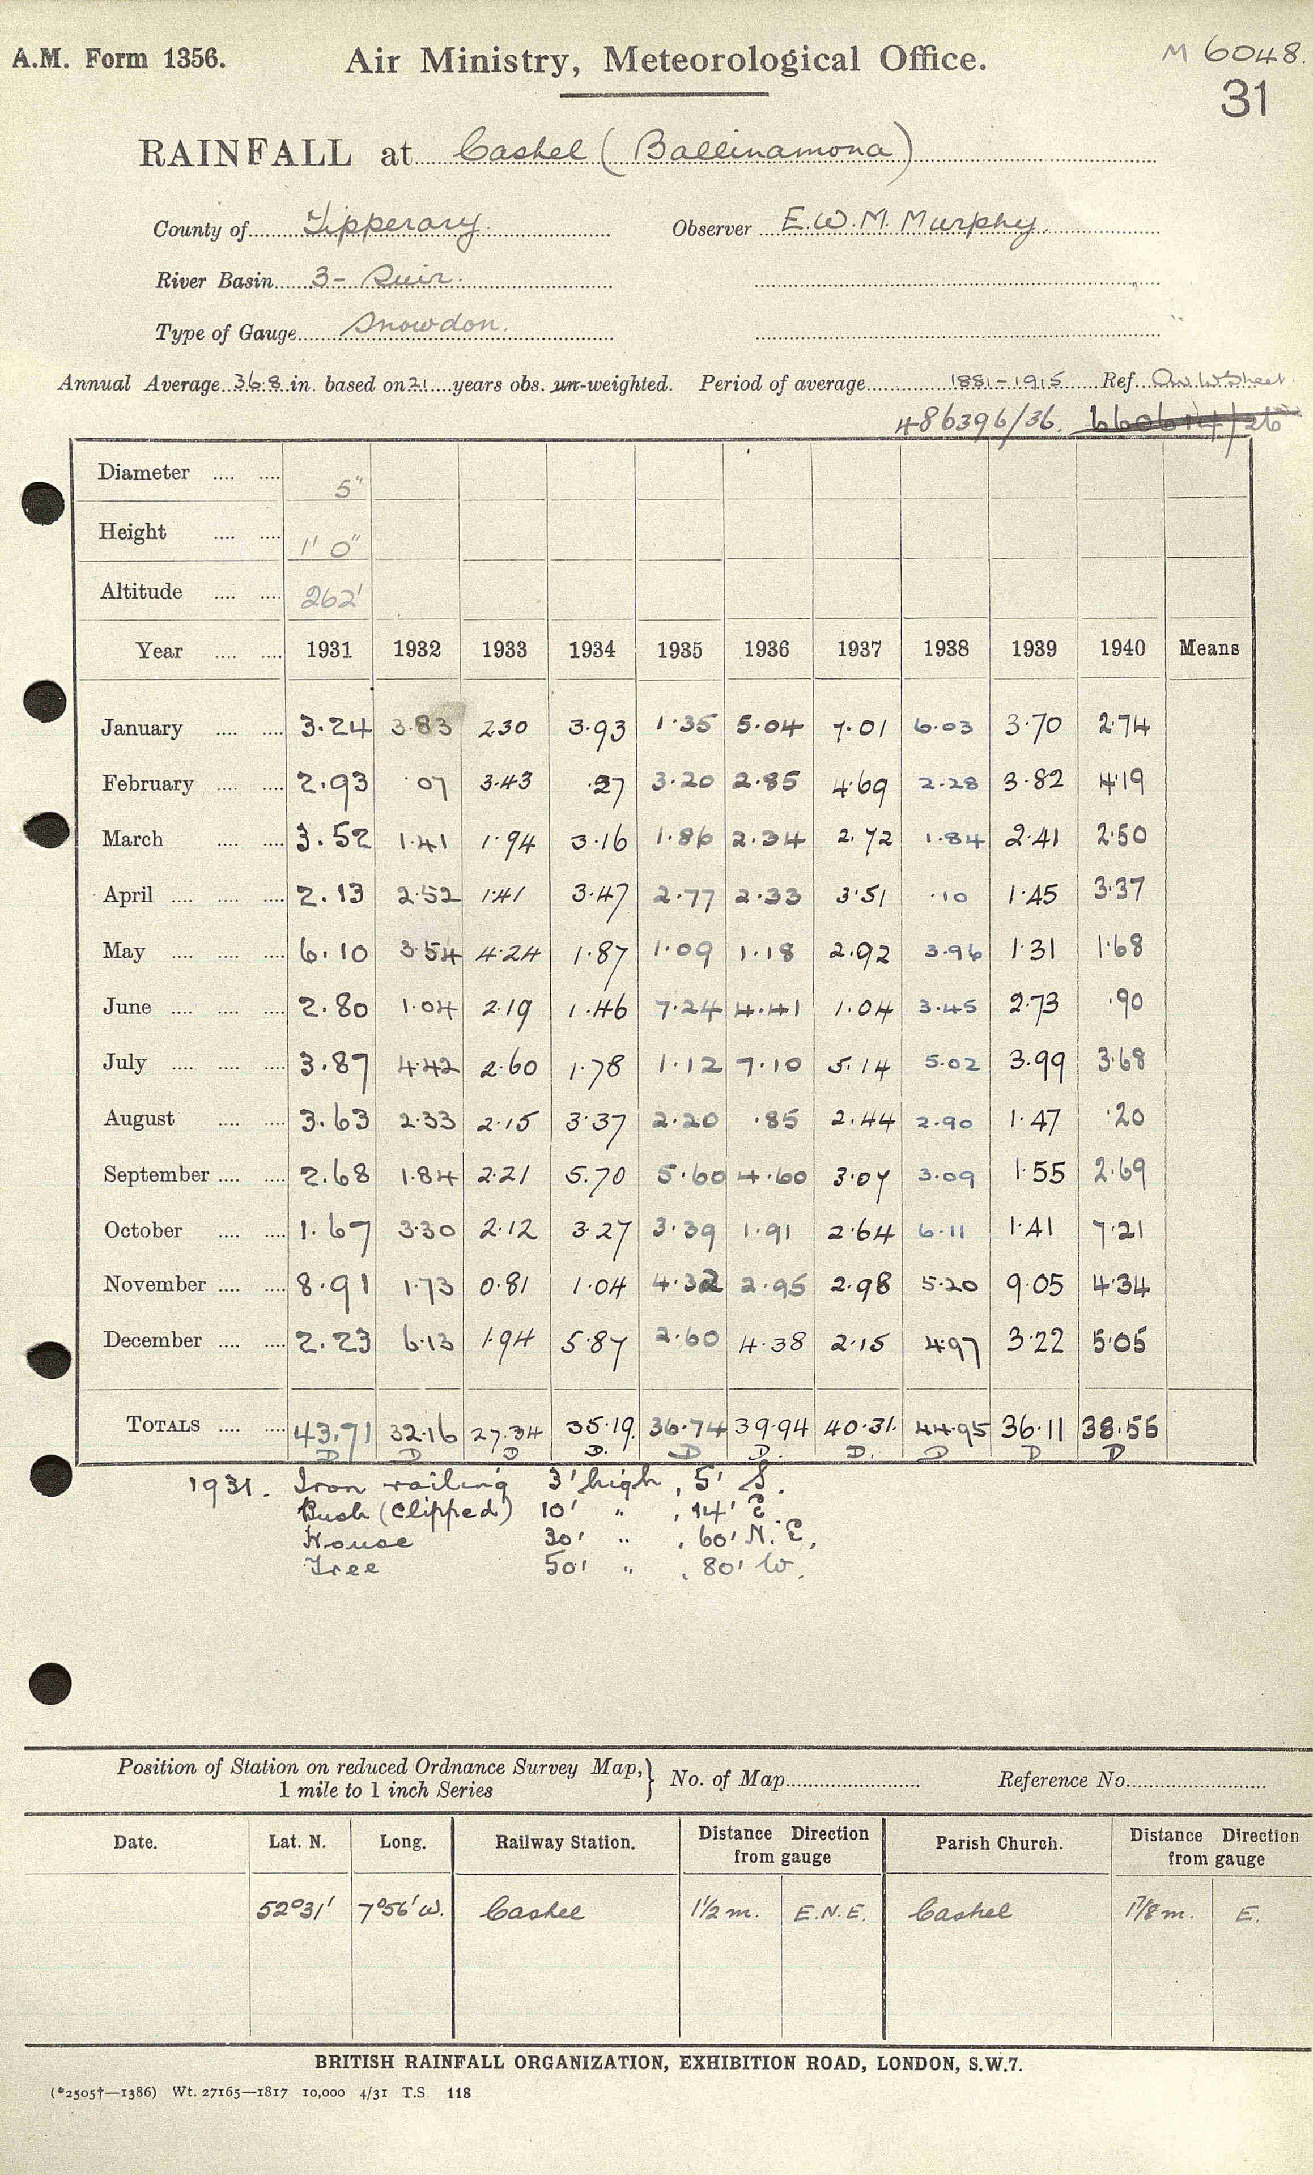 A.M. Form 1356. Air Ministry, Meteorological Office. M 6048.
31
RAINFALL at Cashel (Ballinamona)
County of Tipperary. Observer E.W.M. Murphy.
River Basin 3- Suir.
Type of Gauge Snowdon.
Annual Average 36.8 in. based on 21 years obs. un-weighted. Period of average 1881-1915 Ref.
486396/36.
Diameter 5"
Height 1' 0"
Altitude 262'
Year 1931 1932 1933 1934 1935 1936 1937 1938 1939 1940 Means
January 3.24 3.83 2.30 3.93 1.35 5.04 7.01 6.03 3.70 2.74
February 2.93 .07 3.43 .27 3.20 2.85 4.69 2.28 3.82 4.19
March 3.52 1.41 1.94 3.16 1.86 2.34 2.72 1.84 2.41 2.50
April 2.13 2.52 1.41 3.47 2.77 2.33 3.51 .10 1.45 3.37
May 6.10 3.54 4.24 1.87 1.09 1.18 2.92 3.96 1.31 1.68
June 2.80 1.04 2.19 1.46 7.24 4.41 1.04 3.45 2.73 .90
July 3.87 4.42 2.60 1.78 1.12 7.10 5.14 5.02 3.99 3.68
August 3.63 2.33 2.15 3.37 2.20 .85 2.44 2.90 1.47 .20
September 2.68 1.84 2.21 5.70 5.60 4.60 3.07 3.09 1.55 2.69
October 1.67 3.30 2.12 3.27 3.39 1.91 2.64 6.11 1.41 7.21
November 8.91 1.73 0.81 1.04 4.32 2.95 2.98 5.20 9.05 4.34
December 2.23 6.13 1.94 5.87 2.60 4.38 2.15 4.97 3.22 5.05
TOTALS 43.71 32.16 27.34 35.19. 36.74 39.94 40.31. 44.95 36.11 38.55
D D D D. D D. D. D D D
1931. Iron railing 3' high, 5' S.
Bush (Clipped) 10' " , 14' E.
House 30' " , 60' N.E.
Tree 50' " , 80' W.
Position of Station on reduced Ordnance Survey Map, 1 mile to 1 inch Series } No. of Map Reference No.
Date. Lat. N. Long. Railway Station. Distance Direction from gauge Parish Church. Distance Direction from gauge
52°31' 7°56' W. Cashel 1½ m. E.N.E. Cashel 1⅞ m. E.
BRITISH RAINFALL ORGANIZATION, EXHIBITION ROAD, LONDON, S.W.7.
(*2505†—1386) Wt. 27165—1817 10,000 4/31 T.S 118